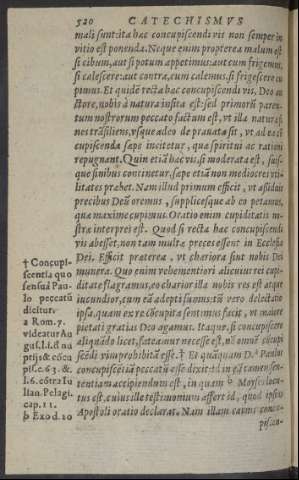 520 CATECHISMVS
mali sunt: ita hac concupiscendi vis non semper in
vitio est ponenda. Neque enim propterea malum est
si cibum, aut si potum appetimus: aut cum frigemus,
si calescere: aut contra, cum calemus, si frigescere cu
pimus. Et quidẽ recta hæc concupiscendi vis, Deo au
ctore, nobis à natura insita est: sed primorũ paren-
tum nostrorum peccato factum est, vt illa naturæ fi-
nes trãsiliens, vsque adeo deprauata sit, vt ad ea cõ
cupiscenda sæpe incitetur, quæ spiritui ac rationi
repugnant. Quin etiã hæc vis, si moderata est, suis-
que finibus continetur, sæpe etiã non mediocres vti-
litates præbet. Nam illud primum efficit, vt assiduis
precibus Deũ oremus, supplicesque ab eo petamus,
quæ maxime cupimus. Oratio enim cupiditatis no-
stræ interpres est. Quod si recta hæc concupiscendi
vis abesset, non tam multæ preces essent in Ecclesia
Dei. Efficit præterea, vt chariora sint nobis Dei
munera. Quo enim vehementiori alicuius rei cupi-
ditate flagramus, eo charior illa nobis res est atque
iucundior, cum eã adepti sumus: tũ vero delectatio
ipsa, quam ex re cõcupita sentimus facit, vt maiore
pietati gratias Deo agamus. Itaque, si concupiscere
aliquãdo licet, fateamur necesse est, nõ omnẽ cõcupi
scẽdi vim prohibitã esse. † Et quãquam D. a Paulus
concupiscẽtiã peccatũ esse dixit: id in eã tamen sen-
tentiam accipiendum est, in quam b Moyses locu-
tus est, cuius ille testimonium affert id, quod ipsius
Apostoli oratio declarat. Nam illam carnis concu-
piscen-
† Concupi-
scentia quo
sensu à Pau
lo peccatũ
dicitur.
a Rom. 7.
videatur Au
gus. l. 1. de nu
ptijs & cõcu
pis. c. 63. &.
l. 6. cõtra Iu
lian. Pelagi.
cap. 11.
b Exod. 20